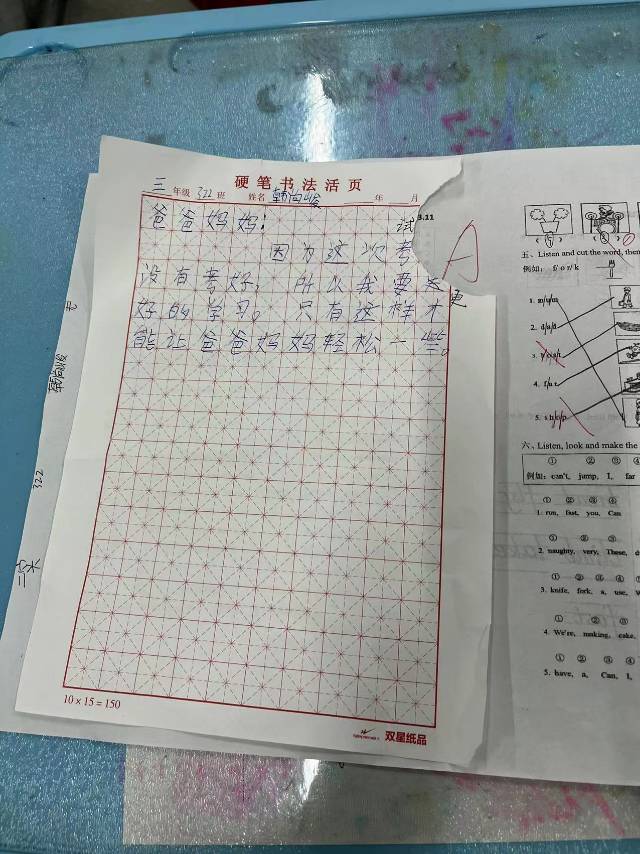 硬笔书法活页
三年级 322班 姓名 年 月
爸爸妈妈：
因为这次考试
没有考好，所以我要更
好的学习。只有这样才
能让爸爸妈妈轻松一些。
10×15=150
双星纸品
322
二实
3.11
A
五、Listen and cut the word, then
例如： f/ o r/ k
1. m/u/m
2. d/a/d
4. f/a r
5. s h/o/p
六、Listen, look and make the
① ② ③ ④
例如: can't, jump, I, far
① ② ③ ④
1. run, fast, you, Can
① ② ③
2. naughty, very, These,
① ② ③ ④
3. knife, fork, a, use,
① ② ③
4. We're, making, cake,
① ② ③ ④
5. have, a, Can, I,